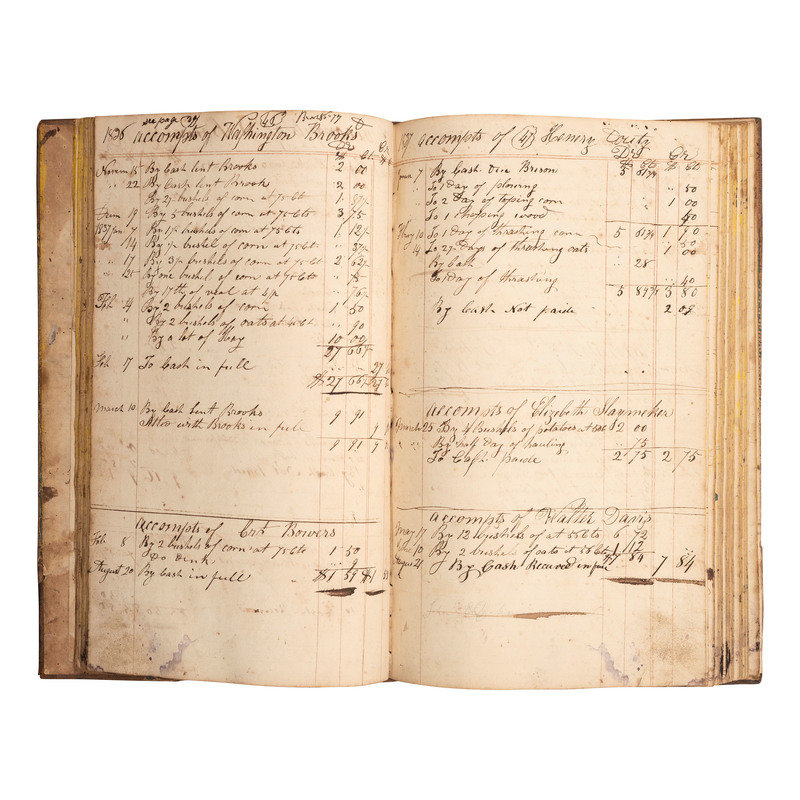 see page
1836 accompts of Washington Brooks
Dr Cr
$ Ct
Novem 15 By Cash lent Brooks 2 00
" 22 By Cash lent Brook 2 00
By 2½ bushels of corn at 75 cts 1 87½
19 By 5 bushels of corn at 75 cts 3 75
1837 7 By 1½ bushels of corn at 75 cts 1 12½
14 By ½ bushel of corn at 75 ct " 37½
" 17 By 3½ bushels of corn at 75 ct 2 62½
" 25 By one bushel of corn at 75 cts " 75
By 17 lb of veal at " 76½
Feb 4 By 2 bushels of corn 1 50
" By 2 bushels of oats at 90
" By a lot of Hay 10 00
27 66½
Feb 7 To Cash in full 27
$ 27 66½ 27
March 10 By Cash Lent Brooks 9 91
with Brooks in full 9
9 91 9
accompts of Bowers
Feb 8 By 2 bushels of corn at 75 cts 1 50
Do 9
August 20 By Cash in full $1 59 $1
accompts of (47) Henery
Dr Cr
$ Ct $ Ct
7 By Cash 5 61¾
" To 1 Day of plowing " 50
" To 2 Day of toping corn 1 00
" To 1 choping wood 40
May 10 To 1 day of thrashing corn 5 61¾ 1 90
4 To 2½ Days of thrashing oats 1 00
By Cash " 28
To 1 day of thrashing 40
5 89¾ 3 80
By Cash Not paide 2 09
accompts of Elizebeth Slaymoker
March 25 By 4 Bushels of potatoes at 50 ct 2 00
" By half Day of hauling " 75
To Cash Paide 2 75 2 75
accompts of Walter Davis
May 17 By 12 bushels of at 56 ct 6 72
10 By 2 bushels of oats at 56 ct 1 12
August 21 By Cash Received in full 7 84 7 84